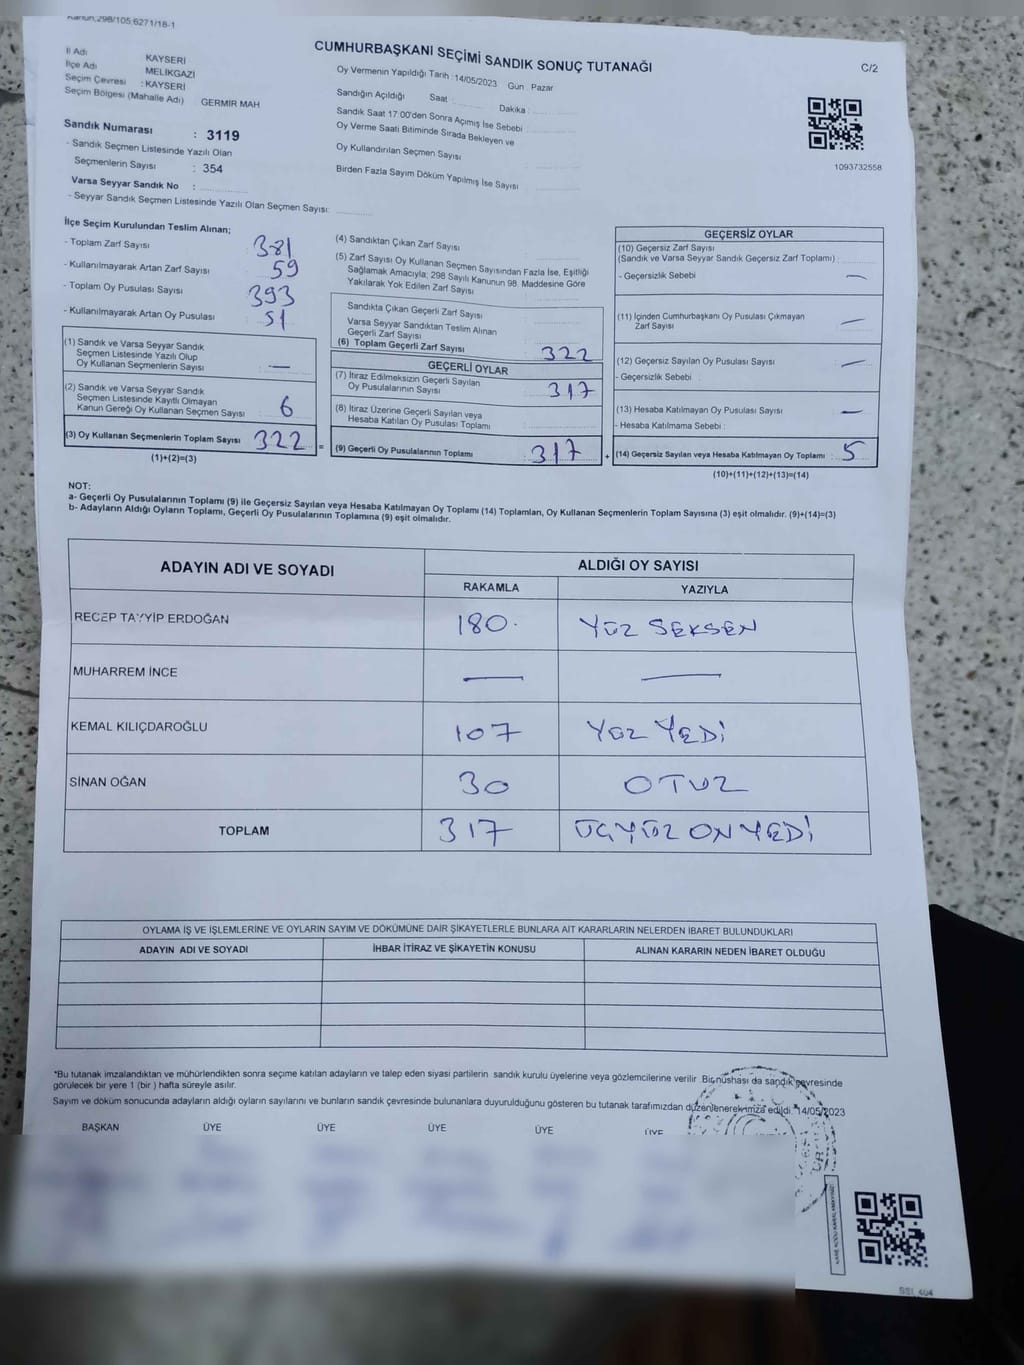 Kanun:298/105,6271/18-1
CUMHURBAŞKANI SEÇİMİ SANDIK SONUÇ TUTANAĞI
C/2
İl Adı KAYSERİ
İlçe Adı MELİKGAZİ
Seçim Çevresi : KAYSERİ
Seçim Bölgesi (Mahalle Adı) GERMİR MAH
Sandık Numarası : 3119
- Sandık Seçmen Listesinde Yazılı Olan
Seçmenlerin Sayısı : 354
Varsa Seyyar Sandık No :
- Seyyar Sandık Seçmen Listesinde Yazılı Olan Seçmen Sayısı:
Oy Vermenin Yapıldığı Tarih : 14/05/2023 Gün : Pazar
Sandığın Açıldığı Saat : Dakika :
Sandık Saat 17:00'den Sonra Açımış İse Sebebi
Oy Verme Saati Bitiminde Sırada Bekleyen ve
Oy Kullandırılan Seçmen Sayısı
Birden Fazla Sayım Döküm Yapılmış İse Sayısı
1093732558
İlçe Seçim Kurulundan Teslim Alınan;
- Toplam Zarf Sayısı 381
- Kullanılmayarak Artan Zarf Sayısı 59
- Toplam Oy Pusulası Sayısı 393
- Kullanılmayarak Artan Oy Pusulası 51
(1) Sandık ve Varsa Seyyar Sandık
Seçmen Listesinde Yazılı Olup
Oy Kullanan Seçmenlerin Sayısı : —
(2) Sandık ve Varsa Seyyar Sandık
Seçmen Listesinde Kayıtlı Olmayan
Kanun Gereği Oy Kullanan Seçmen Sayısı 6
(3) Oy Kullanan Seçmenlerin Toplam Sayısı 322 =
(1)+(2)=(3)
(4) Sandıktan Çıkan Zarf Sayısı
(5) Zarf Sayısı Oy Kullanan Seçmen Sayısından Fazla İse, Eşitliği
Sağlamak Amacıyla; 298 Sayılı Kanunun 98. Maddesine Göre
Yakılarak Yok Edilen Zarf Sayısı
Sandıkta Çıkan Geçerli Zarf Sayısı
Varsa Seyyar Sandıktan Teslim Alınan
Geçerli Zarf Sayısı
(6) Toplam Geçerli Zarf Sayısı 322
GEÇERLİ OYLAR
(7) İtiraz Edilmeksizin Geçerli Sayılan
Oy Pusulalarının Sayısı 317
(8) İtiraz Üzerine Geçerli Sayılan veya
Hesaba Katılan Oy Pusulası Toplamı
(9) Geçerli Oy Pusulalarının Toplamı 317 +
GEÇERSİZ OYLAR
(10) Geçersiz Zarf Sayısı
(Sandık ve Varsa Seyyar Sandık Geçersiz Zarf Toplamı) :
- Geçersizlik Sebebi —
(11) İçinden Cumhurbaşkanı Oy Pusulası Çıkmayan
Zarf Sayısı —
(12) Geçersiz Sayılan Oy Pusulası Sayısı —
- Geçersizlik Sebebi :
(13) Hesaba Katılmayan Oy Pusulası Sayısı —
- Hesaba Katılmama Sebebi :
(14) Geçersiz Sayılan veya Hesaba Katılmayan Oy Toplamı : 5
(10)+(11)+(12)+(13)=(14)
NOT:
a- Geçerli Oy Pusulalarının Toplamı (9) ile Geçersiz Sayılan veya Hesaba Katılmayan Oy Toplamı (14) Toplamları, Oy Kullanan Seçmenlerin Toplam Sayısına (3) eşit olmalıdır. (9)+(14)=(3)
b- Adayların Aldığı Oyların Toplamı, Geçerli Oy Pusulalarının Toplamına (9) eşit olmalıdır.
ADAYIN ADI VE SOYADI ALDIĞI OY SAYISI
RAKAMLA YAZIYLA
RECEP TAYYİP ERDOĞAN 180. YÜZ SEKSEN
MUHARREM İNCE — —
KEMAL KILIÇDAROĞLU 107 YÜZ YEDİ
SİNAN OĞAN 30 OTUZ
TOPLAM 317 ÜÇYÜZ ONYEDİ
OYLAMA İŞ VE İŞLEMLERİNE VE OYLARIN SAYIM VE DÖKÜMÜNE DAİR ŞİKAYETLERLE BUNLARA AİT KARARLARIN NELERDEN İBARET BULUNDUKLARI
ADAYIN ADI VE SOYADI İHBAR İTİRAZ VE ŞİKAYETİN KONUSU ALINAN KARARIN NEDEN İBARET OLDUĞU
*Bu tutanak imzalandıktan ve mühürlendikten sonra seçime katılan adayların ve talep eden siyasi partilerin sandık kurulu üyelerine veya gözlemcilerine verilir. Bir nüshası da sandık çevresinde
görülecek bir yere 1 (bir ) hafta süreyle asılır.
Sayım ve döküm sonucunda adayların aldığı oyların sayılarını ve bunların sandık çevresinde bulunanlara duyurulduğunu gösteren bu tutanak tarafımızdan düzenlenerek imza edildi. 14/05/2023
BAŞKAN ÜYE ÜYE ÜYE ÜYE ÜYE
SSI_404